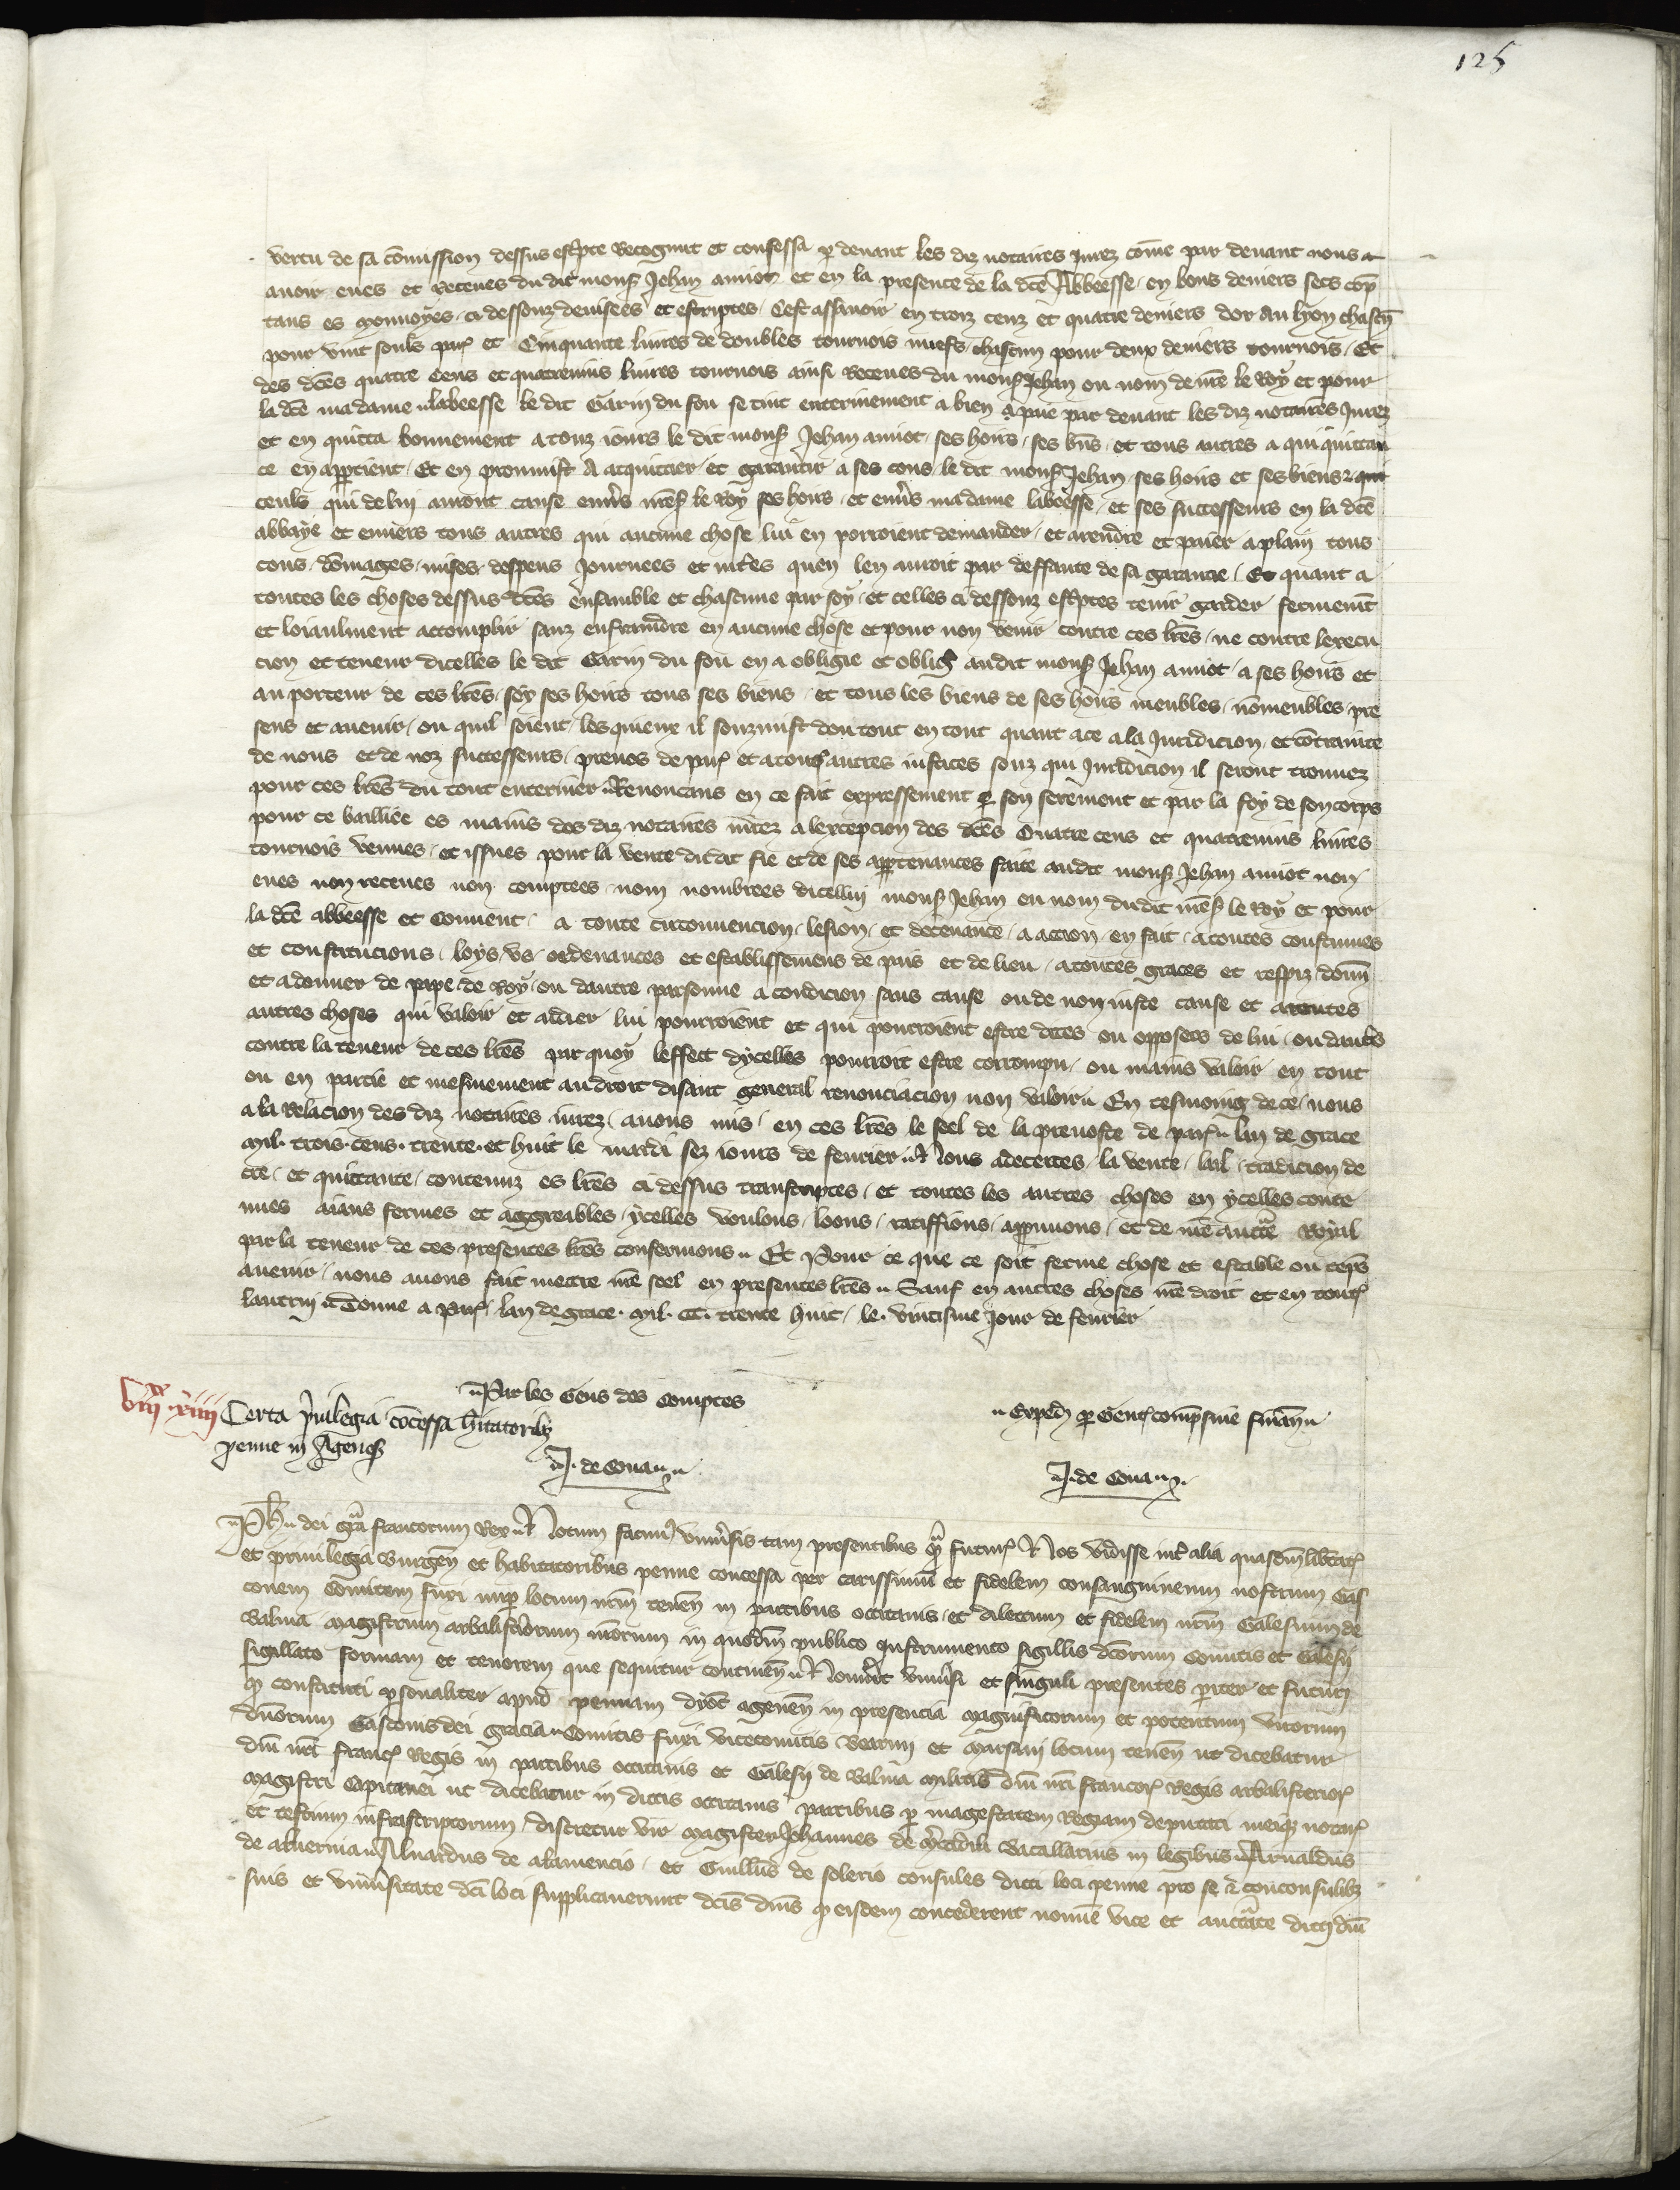 125
vertu de sa cōmission dessus escripte Recognut et confessa p devant les diz notaires jurez cōme par devant nous a
avoir eues et receues du dit monss Jehan amiot et en la presence de la dcē Abbeesse en bons deniers secs cōp
tans es monnoyes ci dessouz devisees et escriptes Cest assavoir en trois cenz et quatre deniers dor Au lyon chascū
pour vint soulz par et Cinquante livres de doubles tournois niefs chascun pour deux deniers tournois Et
des dcēs quatre cens et quatrevins livres tournois ainsi Receues du monss Jehan ou nom de nrē le Roy et pour
la dcē madame labeesse le dit Garin du fou se tint enterinement a bien apaie par devant les diz notaires Jurez
et en quitta bonnement a touz iours le dit monss Jehan amiot ses hoirs ses biēs et tous autres a qui quittan
ce en appartient Et en promist A acquitier et garantir a ses cous le dit monss Jehan ses hoirs et ses biens
ceuls qui de lui auront cause envers nrēs le Roy ses hoirs et envers madame labeesse et ses successeurs en la dcē
abbaye et envers tous autres qui aucune chose lui en porroient demander et a rendre et paier a plain tous
cous dōmages mises despens journees et intrēs quen len auroit par deffaute de sa garantie Et quant a
toutes les choses dessus dcēs ensamble et chascune par soy et celles ci dessouz escriptes tenir garder fermemēt
et loiaulment acomplir sanz enfraindre en aucune chose et pour non venir contre ces lrēs ne contre lexecu
cion et teneur dicelles le dit Garin du fou en a obligie et oblige audit monss Jehan amiot a ses hoirs et
au porteur de ces lrēs soy ses hoirs tous ses biens et tous les biens de ses hoirs meubles nōmeubles pre
sens et avenir ou quil soient lesquieux il souzmist dou tout en tout quant a ce a la Juridicion et cōtrainte
de nous et de noz successeurs prevos de par et a touz autres iustices souz qui Juridicion il seront trouvez
pour ces lrēs du tout enteriner Renoncans en ce fait expressement p son serement et par la foy de son corps
pour ce bailliee es mains des diz notaires jurez a lexcepcion des dcēs Quatre cens et quatrevins livres
tournois venues et issues pour la vente du dit fie et de ses appartenances faite audit monss Jehan amiot non
eues non receues non comptees nom nombrees dicellui monss Jehan ou nom du dit nrēs le Roy et pour
la dcē abbeesse et Couvent a toute circonvencion lesion et decevance a action en fait a toutes coustumes
et constitucions loys us ordenances et establissemens de pais et de lieu a toutes graces et respiz donn
et a donner de pape de Roy ou dautre personne a condicion sans cause ou de non iuste cause et a toutes
autres choses qui valoir et aidier lui pourroient et qui pourroient estre dictes ou opposees de lui ou dautres
contre la teneur de ces lrēs par quoy leffect dycelles pourroit estre corrompu ou mains valoir en tout
ou en partie et mesmement au droit disant general renonciacion non valoir En tesmoing de ce nous
a la Relacion des diz notaires iurez avons mis en ces lrēs le seel de la prevoste de par lan de grace
mil trois cens trente et huit le mardi sez iours de fevrier Nous adecertes la vente bail tradicion de
cre et quittance contenuz es lrēs ci dessus transcriptes et toutes les autres choses en ycelles conte
nues aians fermes et aggreables ycelles voulons loons ratiffions approuvons et de nrē auctē Royal
par la teneur de ces presentes lrēs confermons Et Pour ce que ce soit ferme chose et estable ou tēps
avenir nous avons fait mettre nrē seel en presentes lrēs Sauf en autres choses nrē droit et en toutes
lautrui Donne a Par lan de grace mil CCC trente huit le vintisme jour de fevrier
Par les Gens des Comptes
Exped p Gentes comp sine finan
J. de Cona
J. de Cona
VIIxx XIIII
Certa privilegia cōcessa hītatorib
penne in Agenes
Ph dei grā francorum Rex Notum facimus universis tam presentibus q̄ futuris Nos vidisse int alia quasdam libertates
et privilegia burgen et habitatoribus penne concessa per carissimū et fidelem consanguineum nostrum Gas
conem Comitem fuxi nup locum nrm tenen in partibus occitanis et dilectum et fidelem nrm Galesium de
balma magistrum arbalistriorum nrorum in quodam publico instrumento sigillis dcorum Comitis et Galesii
sigillato formam et tenorem que sequitur continen Noverint universi et singuli presentes pariter et futuri
q̄ constituti personaliter apud pennam dyoc agenen in presencia magnificorum et potentum virorum
dnorum Gastonis dei gracia Comitis fuxi vicecomitis bearnii et marsani locum tenen ut dicebatur
dni nri franc Regis in partibus occitanis et Galesii de balma militis dni nri francor Regis arbalisterior
magistri capitanei ut dicebatur in dictis occitanis partibus p magestatem Regiam deputati meiq notar
et testium infrascriptorum discretus vir magister Johannes de bacallarius in legibus Arnaldus
de alvernia Alnardus de alamencio et Guills de solerio consules dicti loci penne pro se & conconsulib
suis et universitate dci loci supplicaverunt dcis dnis q̄ eisdem concederent nomine vice et auctate dicti dni